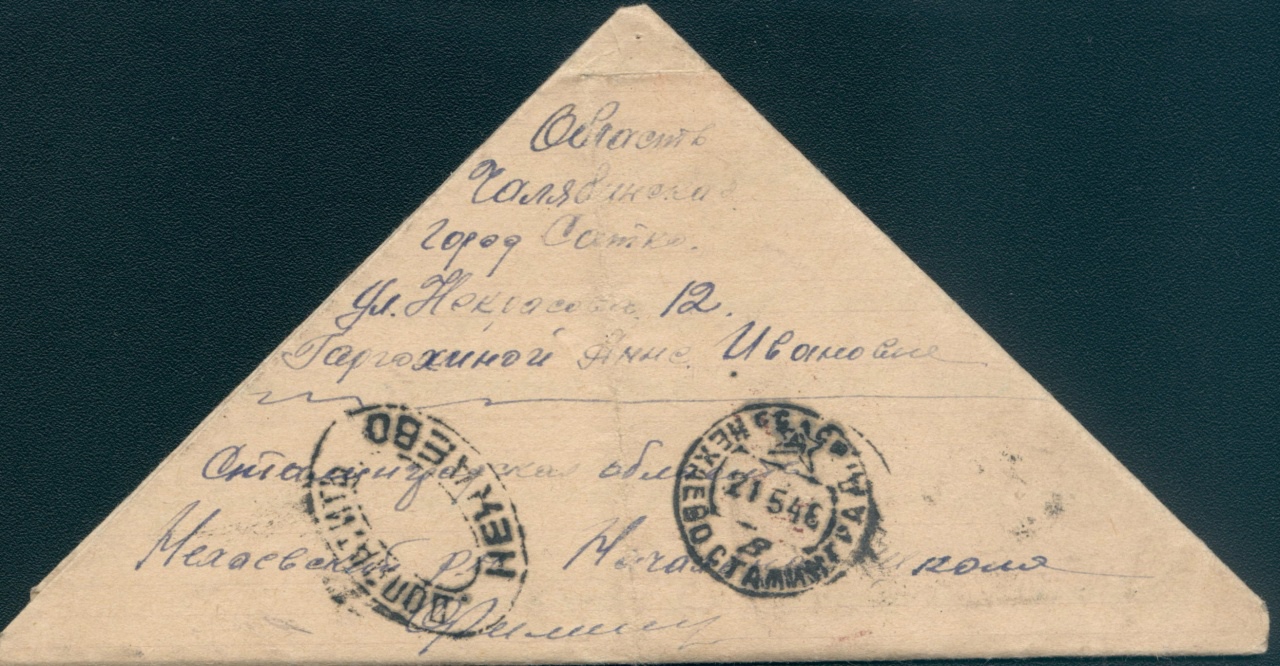 Область
Чалябинская
город Сатка.
ул. Некрасова 12.
Анне Ивановне
Сталинградская обл
Нехаевский р-н
школа
НЕХАЕВО
ДОПЛАТИТЬ
НЕХАЕВО СТАЛИНГРАД. ОБЛ.
21 5 46